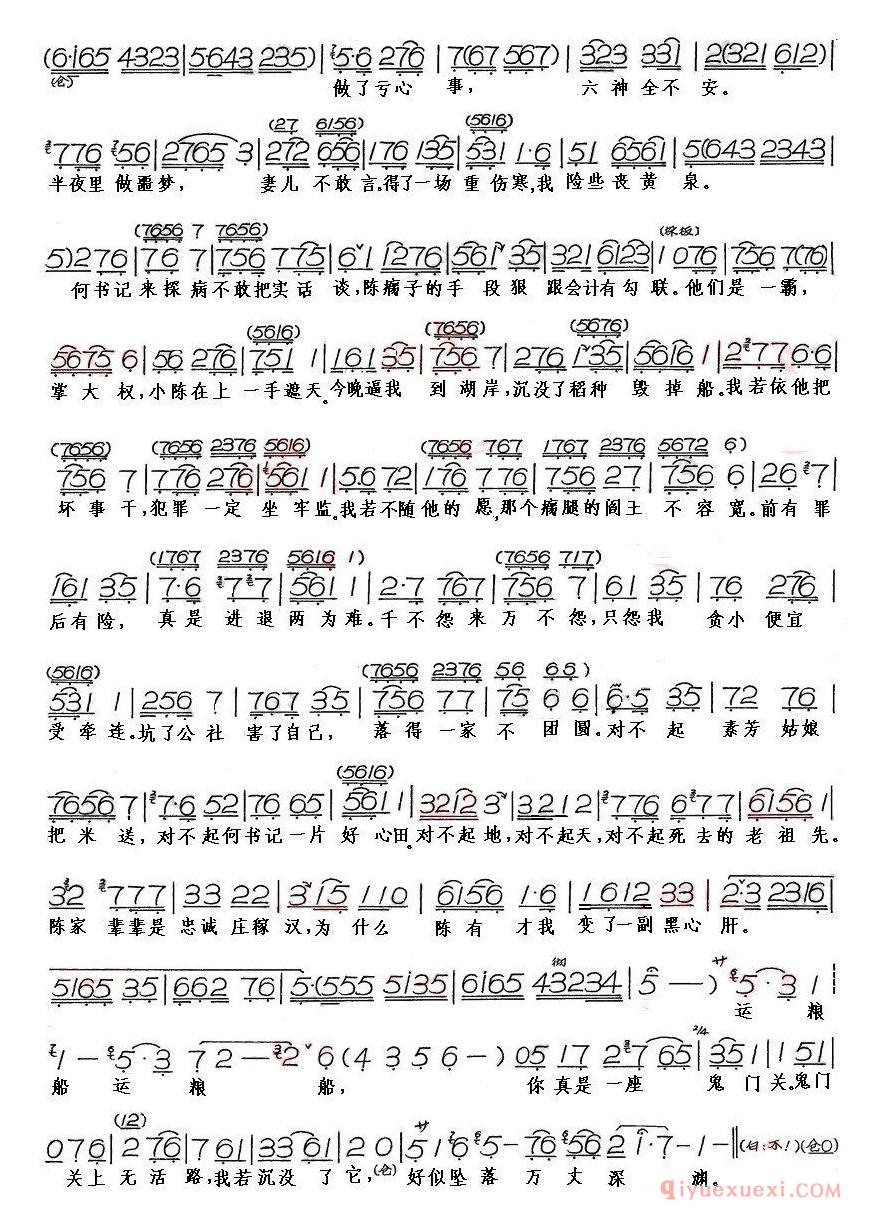 (6·i65 4323|5·643 235)|5·6 276|7(67 567)|323 331|2(321 612)|
(仓) 做了亏心 事， 六神全不 安。
776 56|2765 3|272 656|176 135|531 1·6|51 6561|5(643 2343|
半夜里做噩梦， 妻儿不敢言。得了一场重伤寒，我险些丧黄泉。
5)276|76 7|756 775|6 1 1276|561 35|321 6123|1 076|756 7(76)|
何书记来探病不敢把实话谈，陈瘸子的手段狠跟会计有勾联。他们是一霸，
5675 6|56 276|751 1|161 35|756 7|276 135|5616 1|2 77 6·6|
掌大权，小陈在上一手遮天。今晚逼我到湖岸，沉没了稻种毁掉船。我若依他把
756 7|776 276|561 1|5·6 72|176 776|756 27|756 6|26 7|
坏事干，犯罪一定坐牢监。我若不随他的愿，那个瘸腿的阎王不容宽。前有罪
161 35|7·6 77|561 1|2·7 767|756 7|61 35|76 276|
后有险，真是进退两为难。千不怨来万不怨，只怨我贪小便宜
531 1|256 7|767 35|756 77|75 6 6|6·5 35|72 76|
受牵连。坑了公社害了自己，落得一家不团圆。对不起素芳姑娘
7656 7|7·6 52|76 65|561 1|3212 3|321 2|776 677|6156 1|
把米送，对不起何书记一片好心田。对不起地，对不起天，对不起死去的老祖先。
32 777|33 22|3 15|110|6156 1·6|1612 33|2·3 2316|
陈家辈辈是忠诚庄稼汉，为什么陈有才我变了一副黑心肝。
5165 35|662 76|5·(555 5i35|6i65 43234|5 — )|5·3 1
运粮
1 — 5·3 7 2 — 2 6 (4 3 5 6 —) 05 17 2 765|351|1 51|
船运粮船， 你真是一座鬼门关。鬼门
076|2276|761|3361|2 0|51 6 5 — 76 56 2 1·7 — 1 — ‖(白：不！)(仓0)
关上无活路，我若沉没了它，(仓)好似坠落万丈深渊。
qiyuexuexi.COM